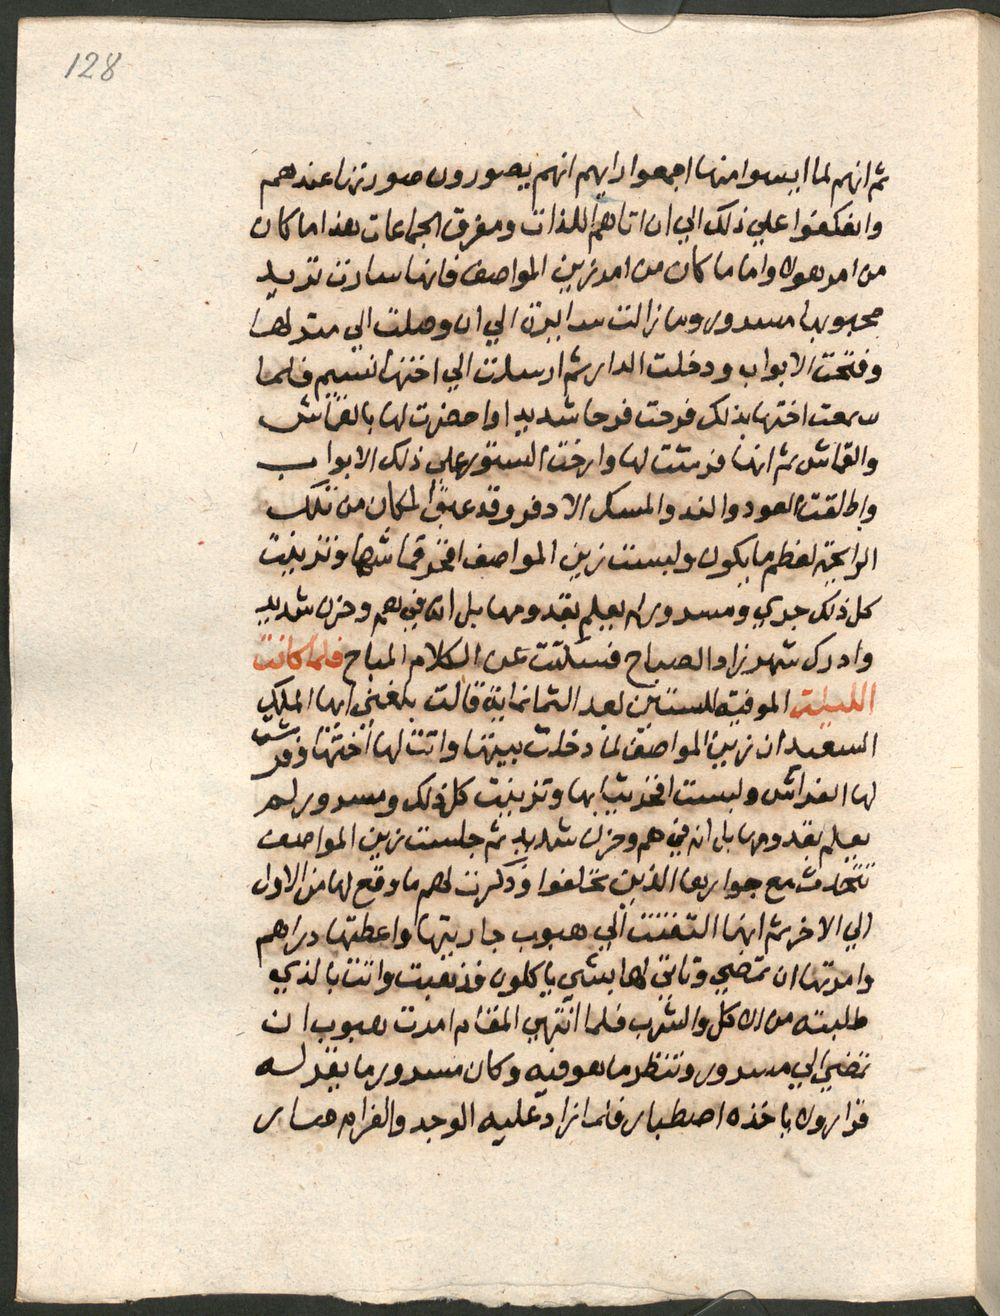 128
ثم انهم لما ايسوا منها اجمعوا رايهم انهم يصورون صورتها عندهم
وانعكفوا علي ذلك الي ان اتاهم اللذات ومفرق الجماعات هذا ما كان
من امر هولا واما ما كان من امر زين المواصف فانها سارت تريد
محبوبها مسرور وما زالت سايرة الي ان وصلت الي منزلها
وفتحت الابواب ودخلت الدار ثم ارسلت الي اختها نسيم فلما
سمعت اختها بذلك فرحت فرحا شديدا واحضرت لها بالفراش
والقماش ثم انها فرشت لها وارخت الستور علي ذلك الابواب
واطلقت العود والند والمسك الادفر وقد عبق المكان من تلك
الرايحة لعظم ما يكون ولبست زين المواصف افخر قماشها وتزينت
كل ذلك جري ومسرور لم يعلم بقدومها بل انه في هم وحزن شديد
وادرك شهرزاد الصباح فسكتت عن الكلام المباح فلما كانت
الليلة الموفية للستين بعد الثمانماية قالت بلغني ايها الملك
السعيد ان زين المواصف لما دخلت بيتها واتت لها اختها وفرشت
لها الفراش ولبست افخر ثيابها وتزينت كل ذلك ومسرور لم
يعلم بقدومها بل انه في هم وحزن شديد ثم جلست زين المواصف
تتحدث مع جوارها الذين تخلفوا وذكرت لهم ما وقع لها من الاول
الي الاخر ثم انها التفتت الي هبوب جاريتها واعطتها دراهم
وامرتها ان تمضي وتاتي لها بشي ياكلون فذهبت واتت بالذي
طلبته من الاكل والشرب فلما انتهي المقام امرت هبوب ان
تمضي الي مسرور وتنظر ما هو فيه وكان مسرور ما يقر له
قرار ولا ياخذه اصطبار فلما زاد عليه الوجد والغرام صار